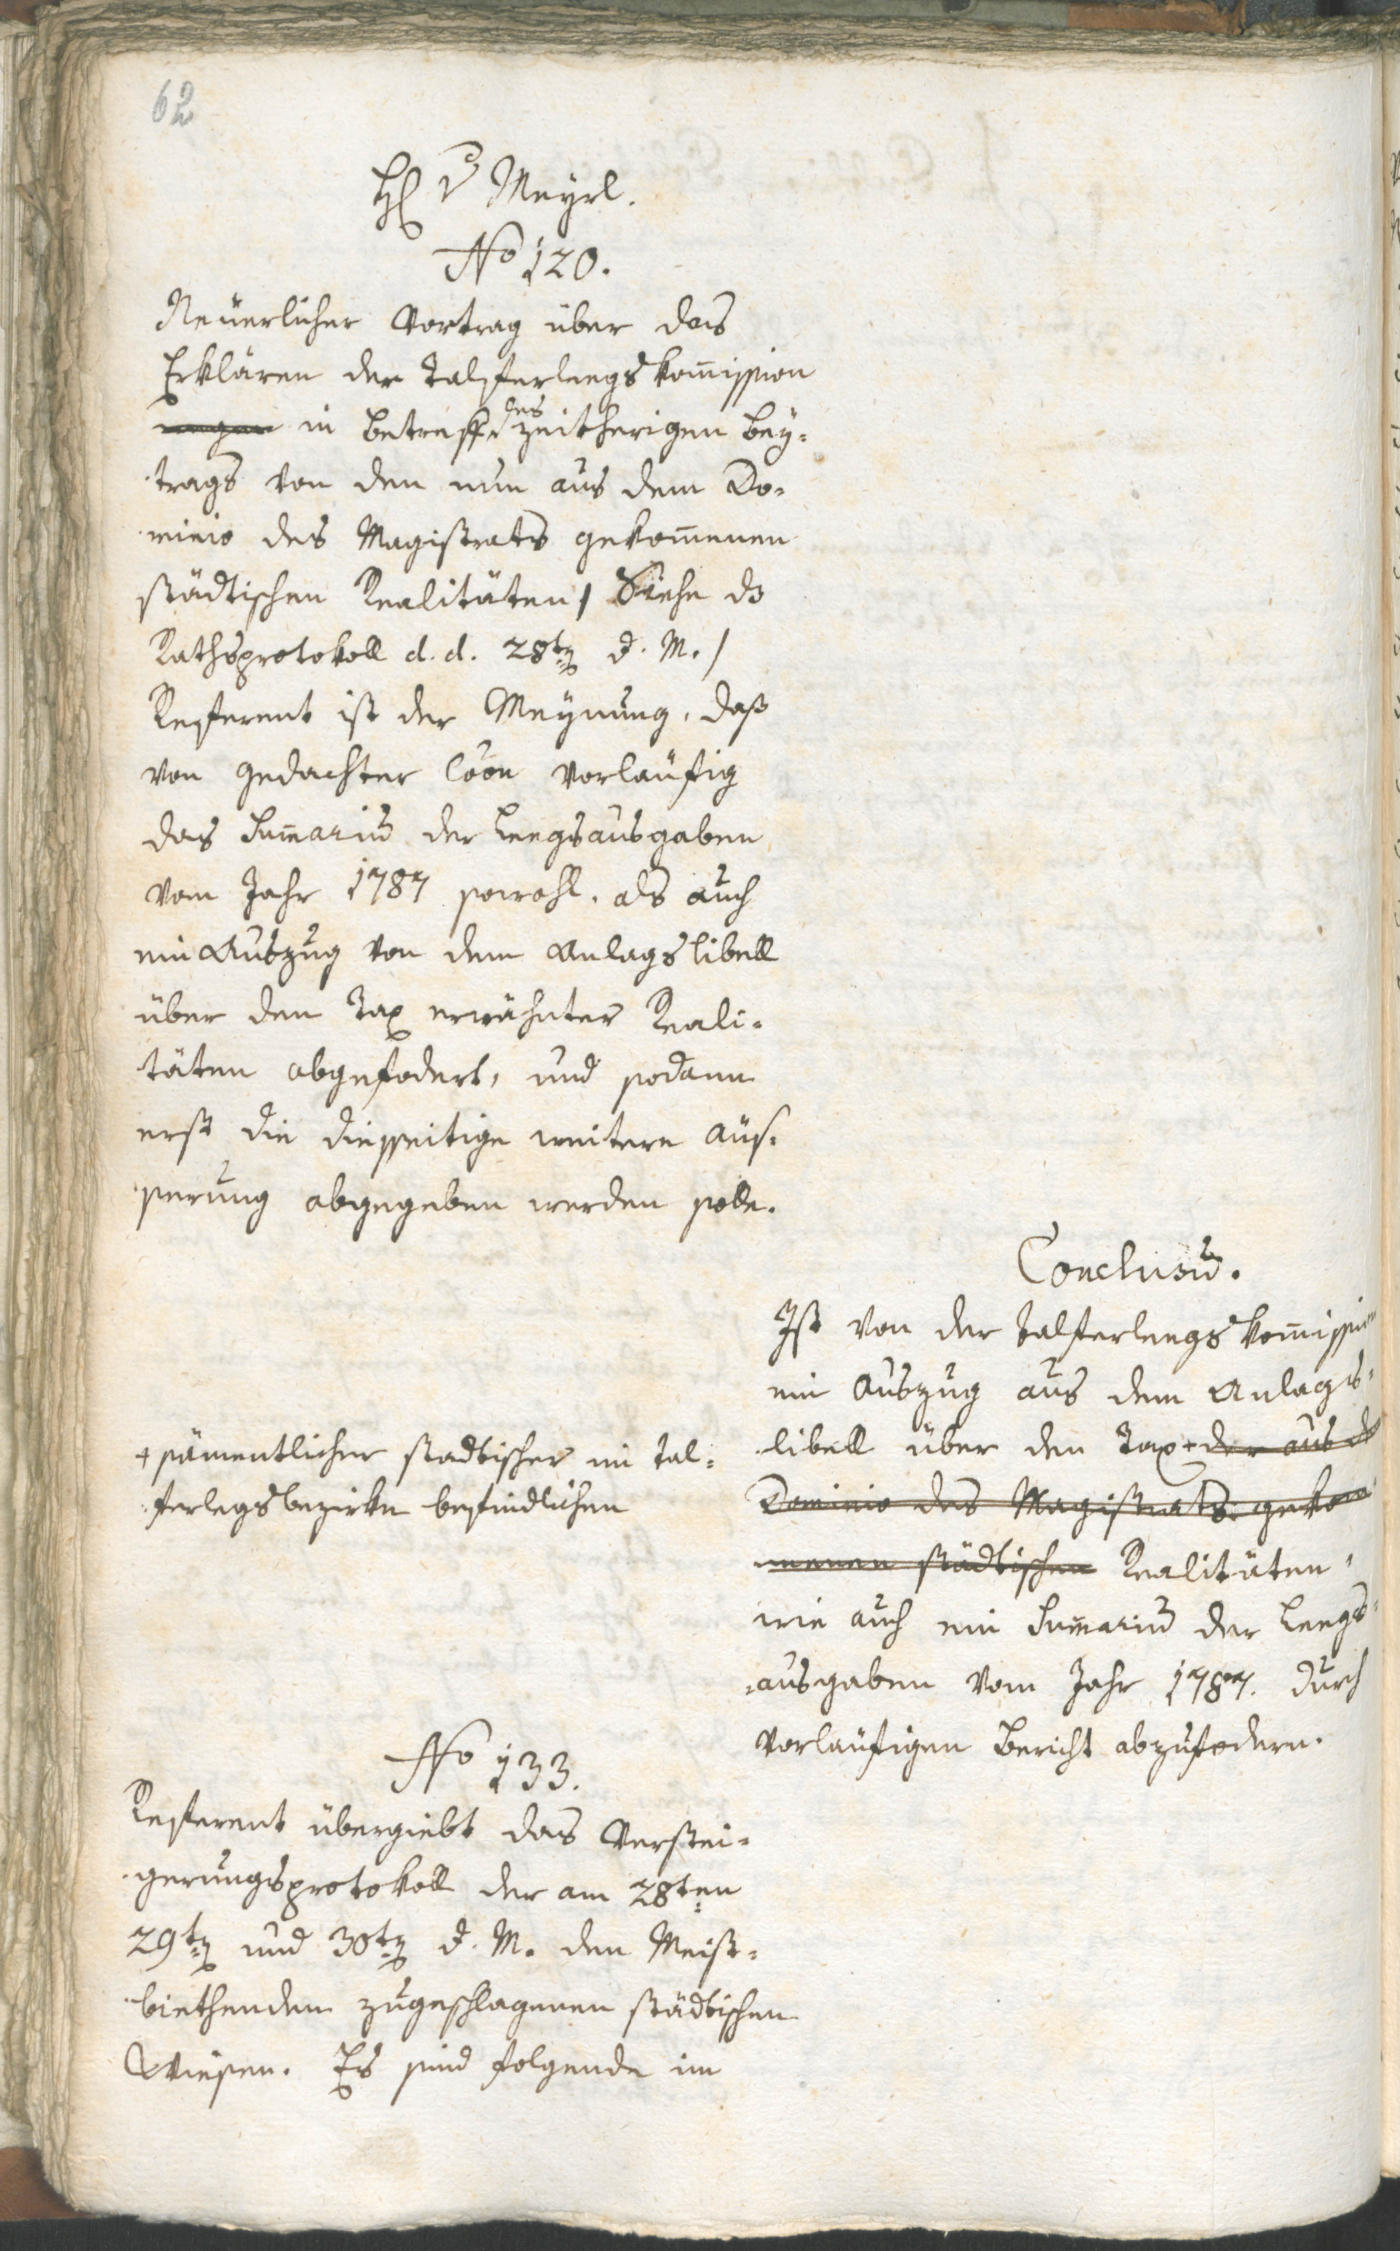 62
H v Meyrl.
No 120.
Neüerlicher Vortrag über das
Erklären der Talferleegskom̄ission
wegen in Betreff des zeitherigen Bey=
trags von den nun aus dem Do=
minio des Magistrats gekom̄enen
städtischen Realitäten / Siehe ds
Rathsprotokoll d. d. 28t d. M. /
Referent ist der Meynung, daß
von gedachter Coon vorläufig
das Sum̄ariū der Leegsausgaben
vom Jahr 1787 sowohl, als auch
ein Auszug von dem Anlagslibell
über den Tax erwähnter Reali=
täten abgefodert, und sodann
erst die diesseitige weitere Aüs=
serung abgegeben werden solle.
Conclusū.
Ist von der Talferleegskom̄ission
ein Auszug aus dem Anlags=
libell über den Tax + der aus de
Dominio des Magistrats gekom
menen städtischen Realitäten,
wie auch ein Sum̄ariū der Leegs=
ausgaben vom Jahr 1787. durch
vorläufigen Bericht abzufodern.
+ sämentlicher stadtischer im Tal=
ferlegsbezirke befindlichen
No 133.
Referent übergiebt das Verstei=
gerungsprotokoll der am 28ten
29t und 30t d. M. den Meist=
biethenden zugeschlagenen städtischen
Wiesen. Es sind folgende im